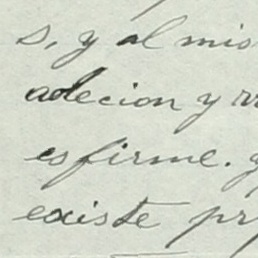 s, y al mis
adecion y
es firme.
existe pr